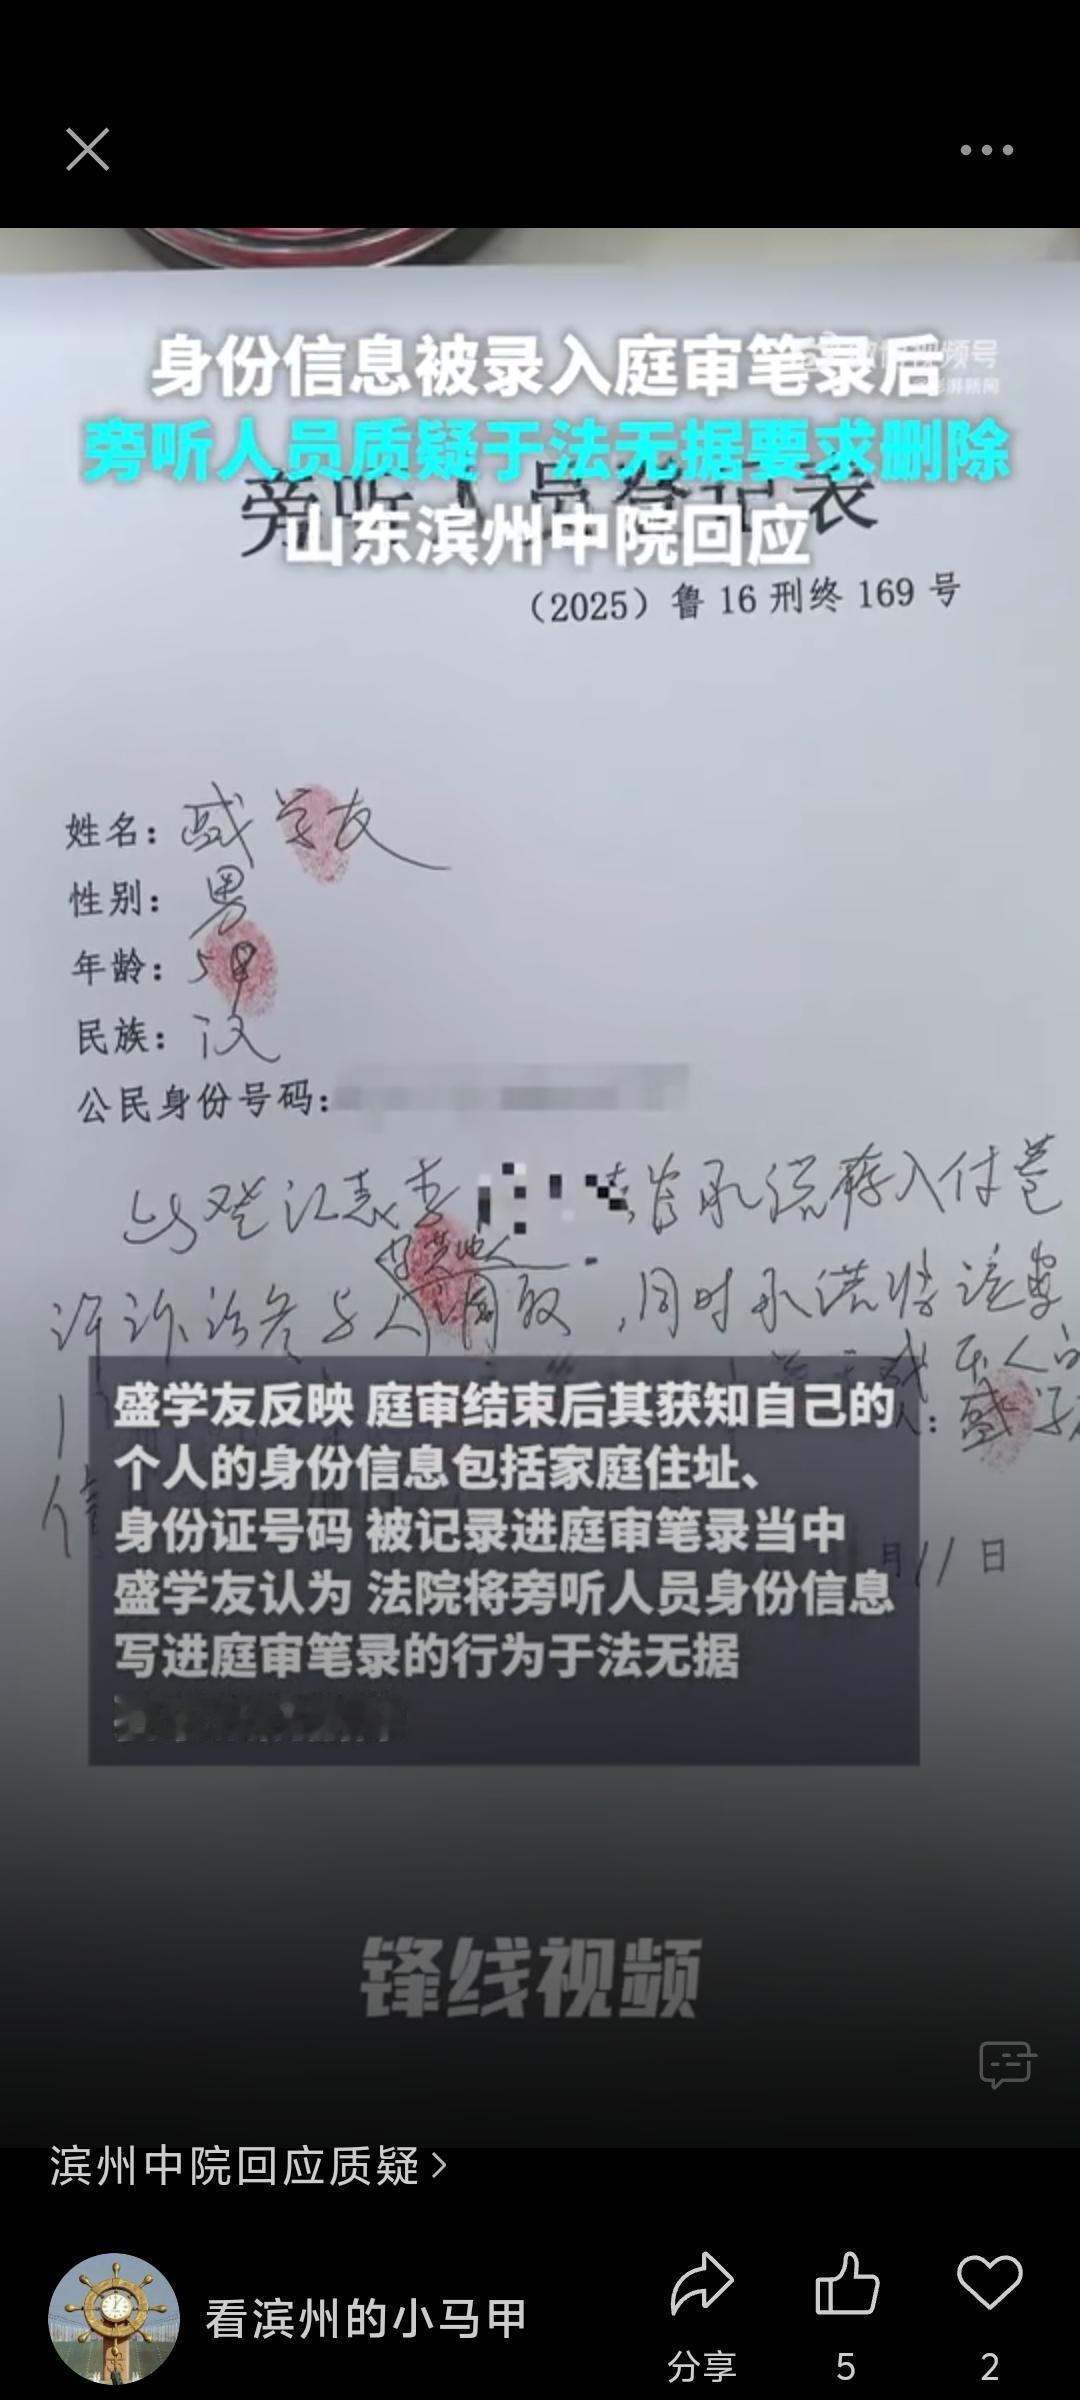 身份信息被录入庭审笔录后
旁听人员质疑于法无据要求删除
山东滨州中院回应
旁听人员登记表
(2025)鲁 16 刑终 169 号
姓名：盛学友
性别：男
年龄：58
民族：汉
公民身份号码：
此登记表
许诉讼参与人 阅取，同时承诺将该
本人
盛学友反映 庭审结束后其获知自己的
个人的身份信息包括家庭住址、
身份证号码 被记录进庭审笔录当中
盛学友认为 法院将旁听人员身份信息
写进庭审笔录的行为于法无据
月11日
锋线视频
滨州中院回应质疑
看滨州的小马甲
分享
5
2